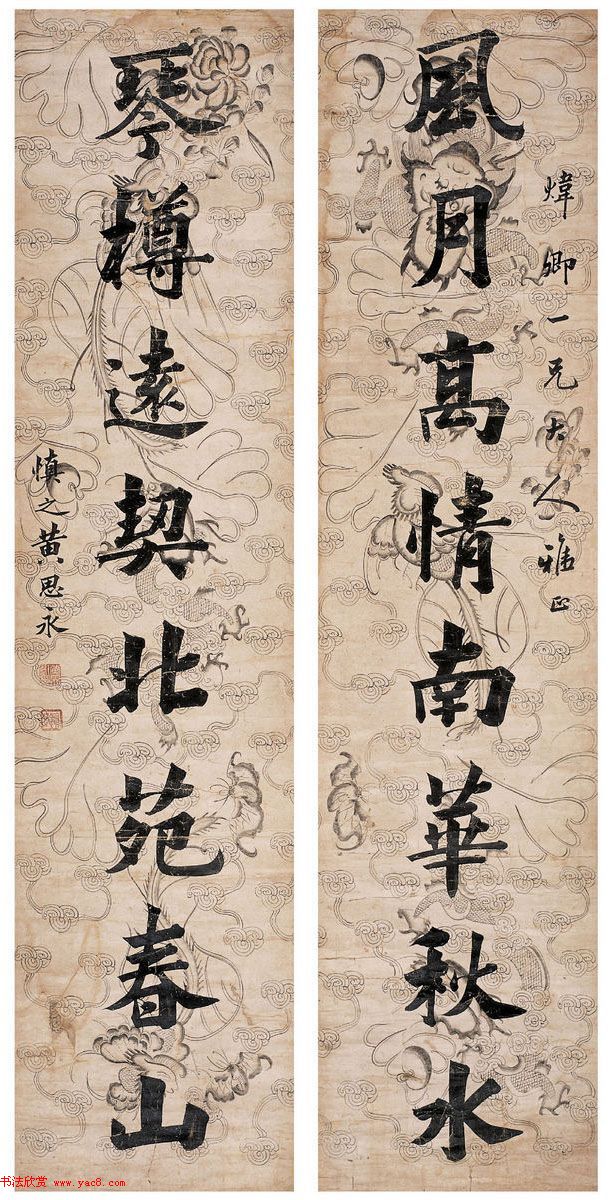 煒卿一兄大人雅正
風月高情南華秋水
琴樽遠契北苑春山
慎之黄思永
书法欣赏 www.yac8.com